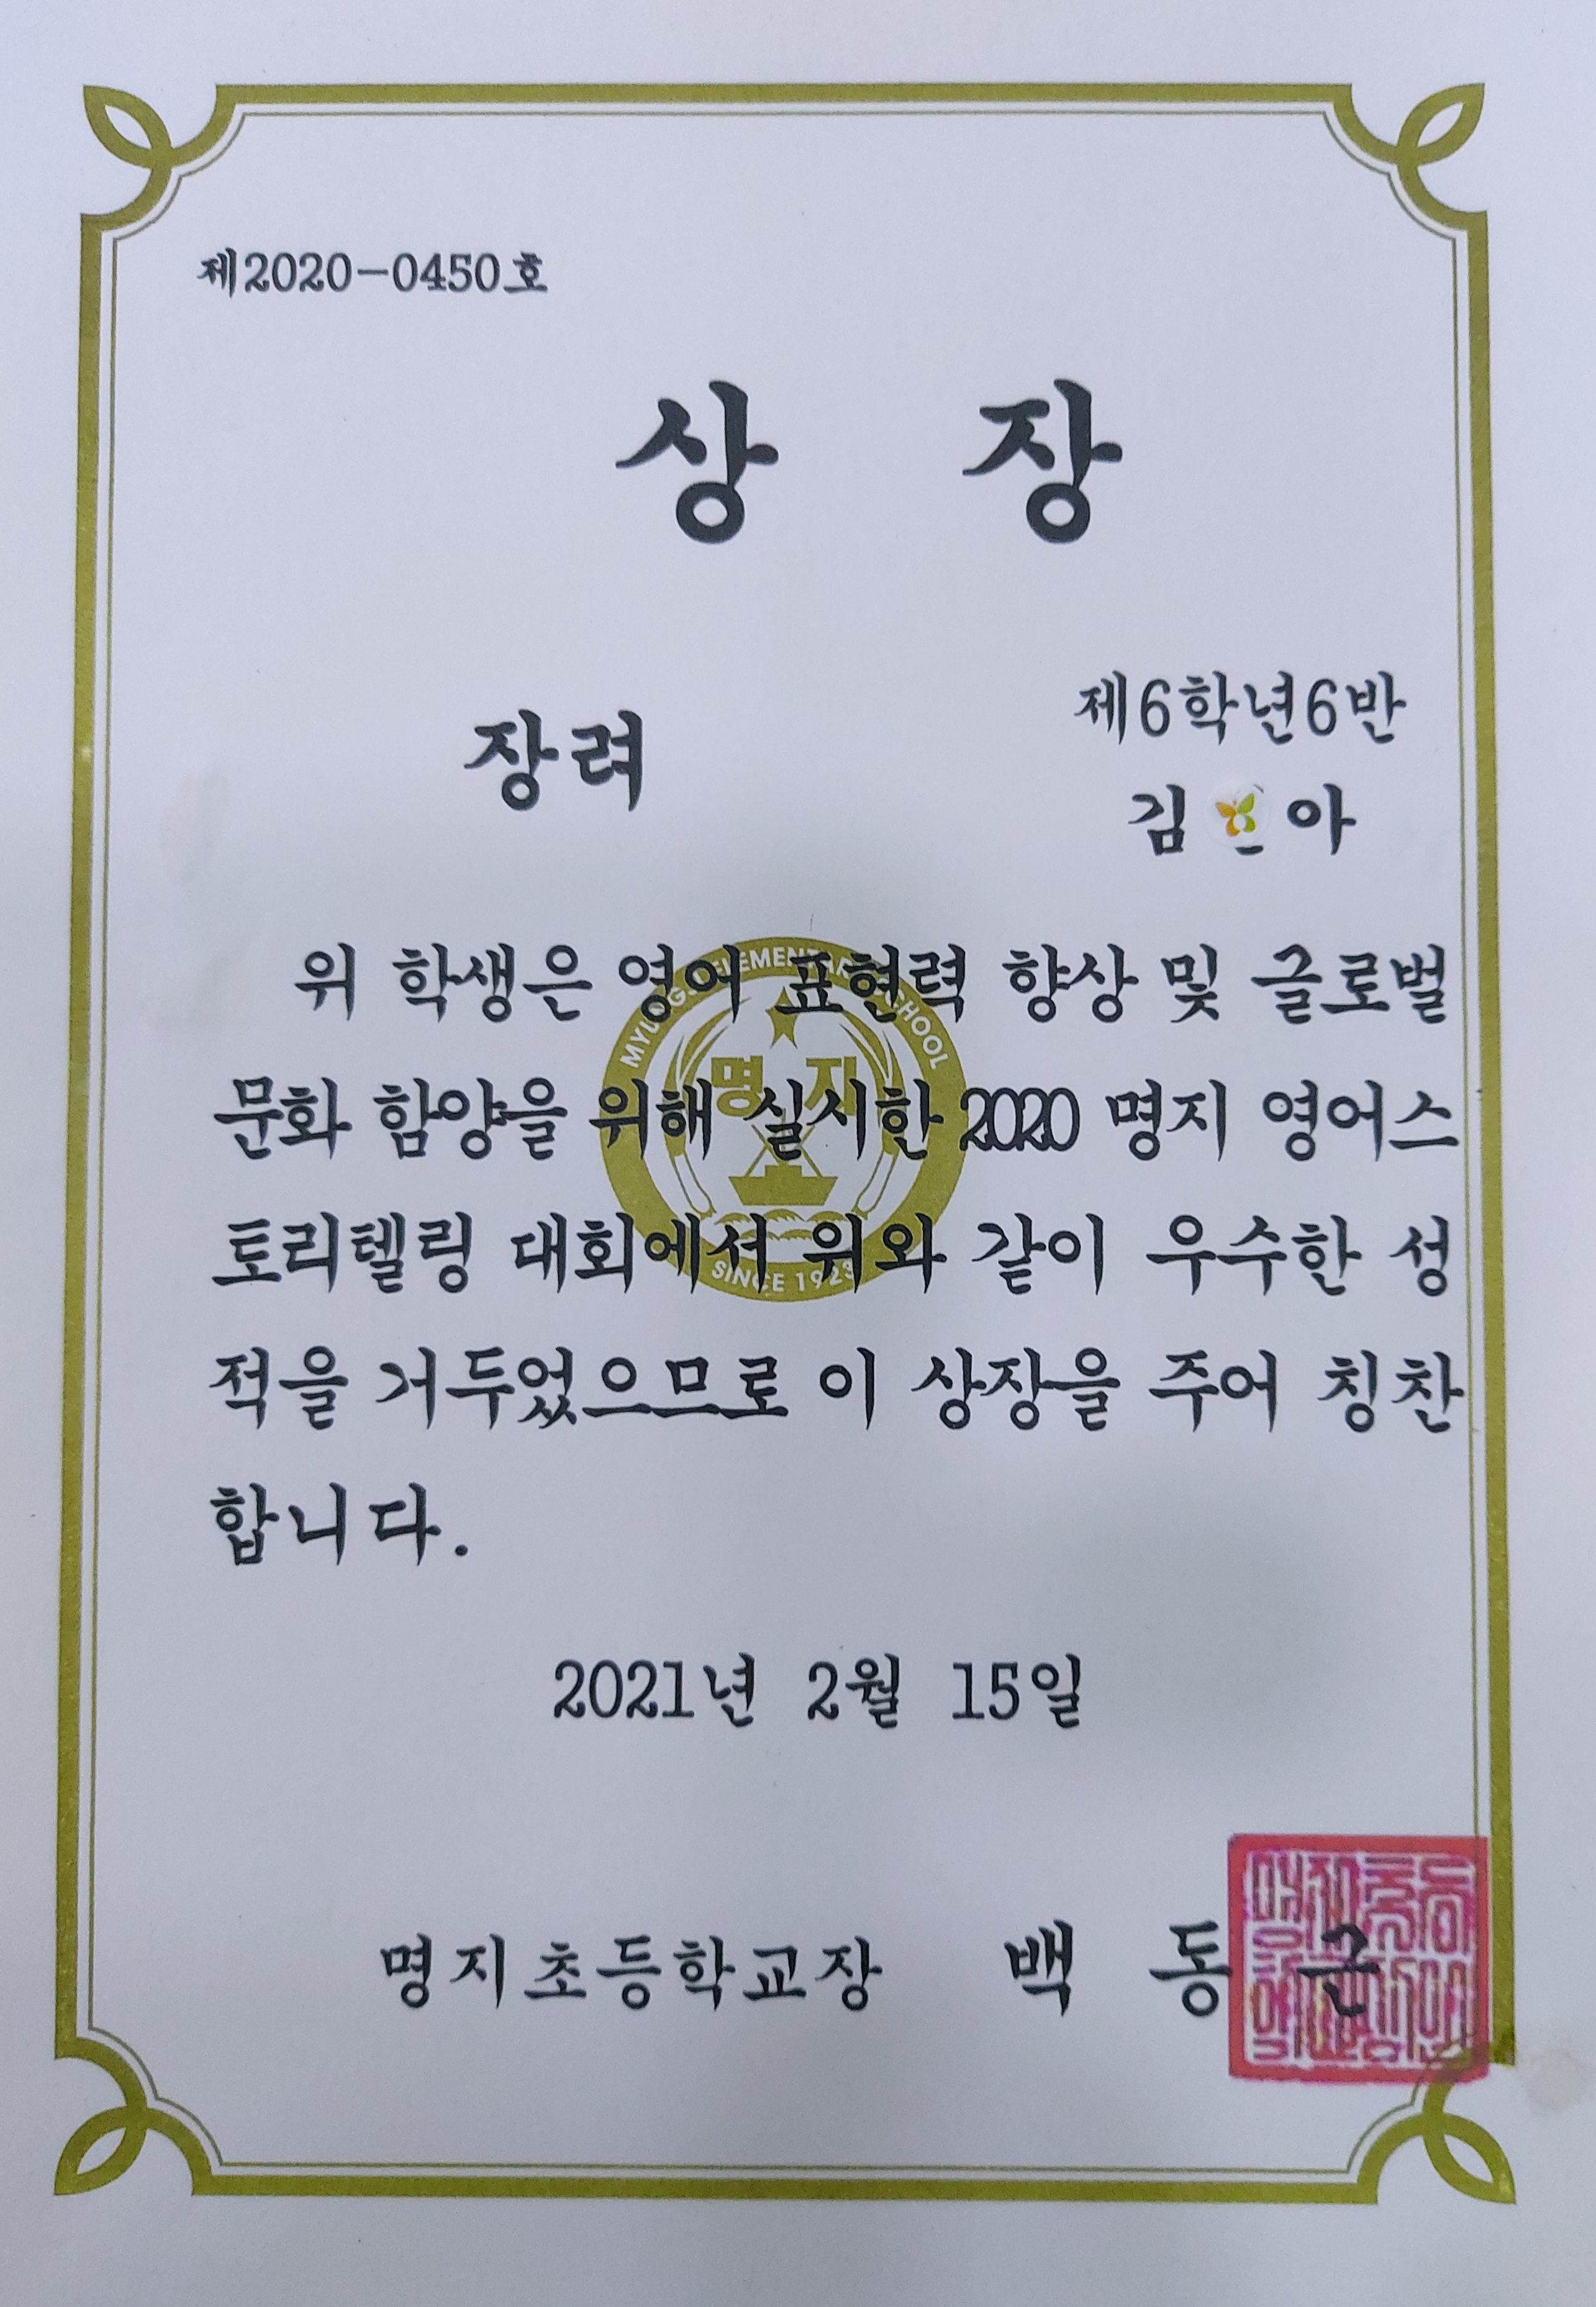 제2020-0450호
상 장
장려
제6학년6반
김 아
위 학생은 영어 표현력 향상 및 글로벌
문화 함양을 위해 실시한 2020 명지 영어스
토리텔링 대회에서 위와 같이 우수한 성
적을 거두었으므로 이 상장을 주어 칭찬
합니다.
MYUNGJI ELEMENTARY SCHOOL
명 지
SINCE 1923
2021년 2월 15일
명지초등학교장 백 동 근